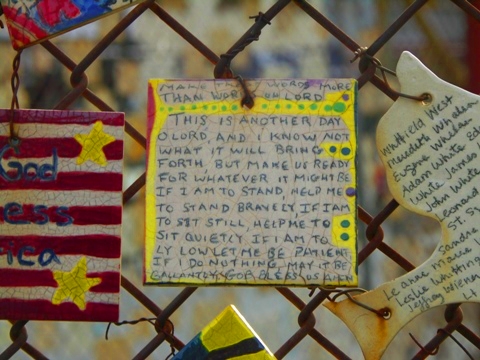 God
ess
ica
MAKE WORDS MORE
THAN WORDS OH LORD
THIS IS ANOTHER DAY
O LORD, AND I KNOW NOT
WHAT IT WILL BRING
FORTH. BUT MAKE US READY
FOR WHATEVER IT MIGHT BE
IF I AM TO STAND, HELP ME
TO STAND BRAVELY. IF I AM
TO SIT STILL, HELP ME TO
SIT QUIETLY IF I AM TO
LY LOW LET ME BE PATIENT
IF I DO NOTHING, MAY IT BE
GALLANTLY. GOD BLESS US AMEN
Whitfield West
Meredith Whalen
Eugene Whelan
Adam White Ed
White James
John White
Leonard
St Su
Sandra
Marie
Leanne
Leslie Whitting
Jeffrey Wiener